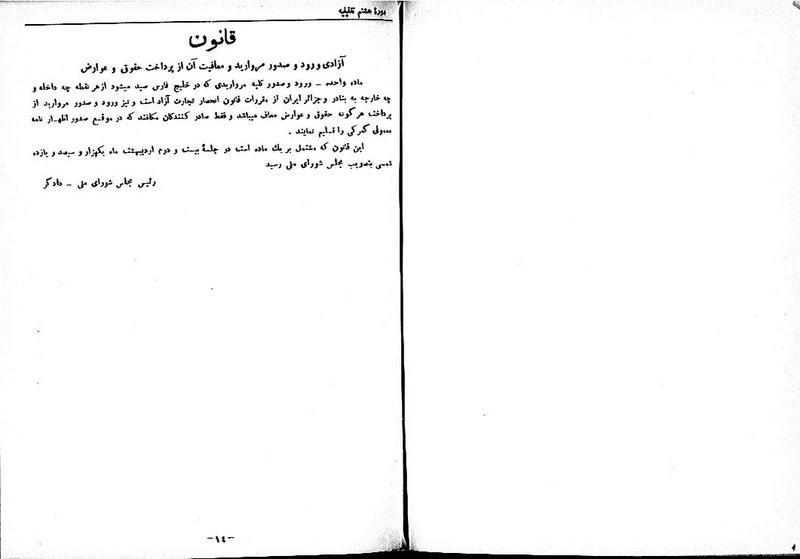 دورهٔ هشتم تقنینیه
قانون
آزادی ورود و صدور مروارید و معافیت آن از پرداخت حقوق و عوارض
ماده واحده – ورود و صدور کلیه مرواریدی که در خلیج فارس صید میشود از هر نقطه چه داخله و
چه خارجه به بنادر و جزائر ایران از مقررات قانون انحصار تجارت آزاد است و نیز ورود و صدور مروارید از
پرداخت هر گونه حقوق و عوارض معاف میباشد و فقط صادر کنندگان مکلفند که در موقع صدور اظهار نامه
معمولی گمرکی را تسلیم نمایند .
این قانون که مشتمل بر یك ماده است در جلسهٔ بیست و دوم اردیبهشت ماه یکهزار و سیصد و یازده
شمسی بتصویب مجلس شورای ملی رسید
رئیس مجلس شورای ملی – دادگر
-١٤-